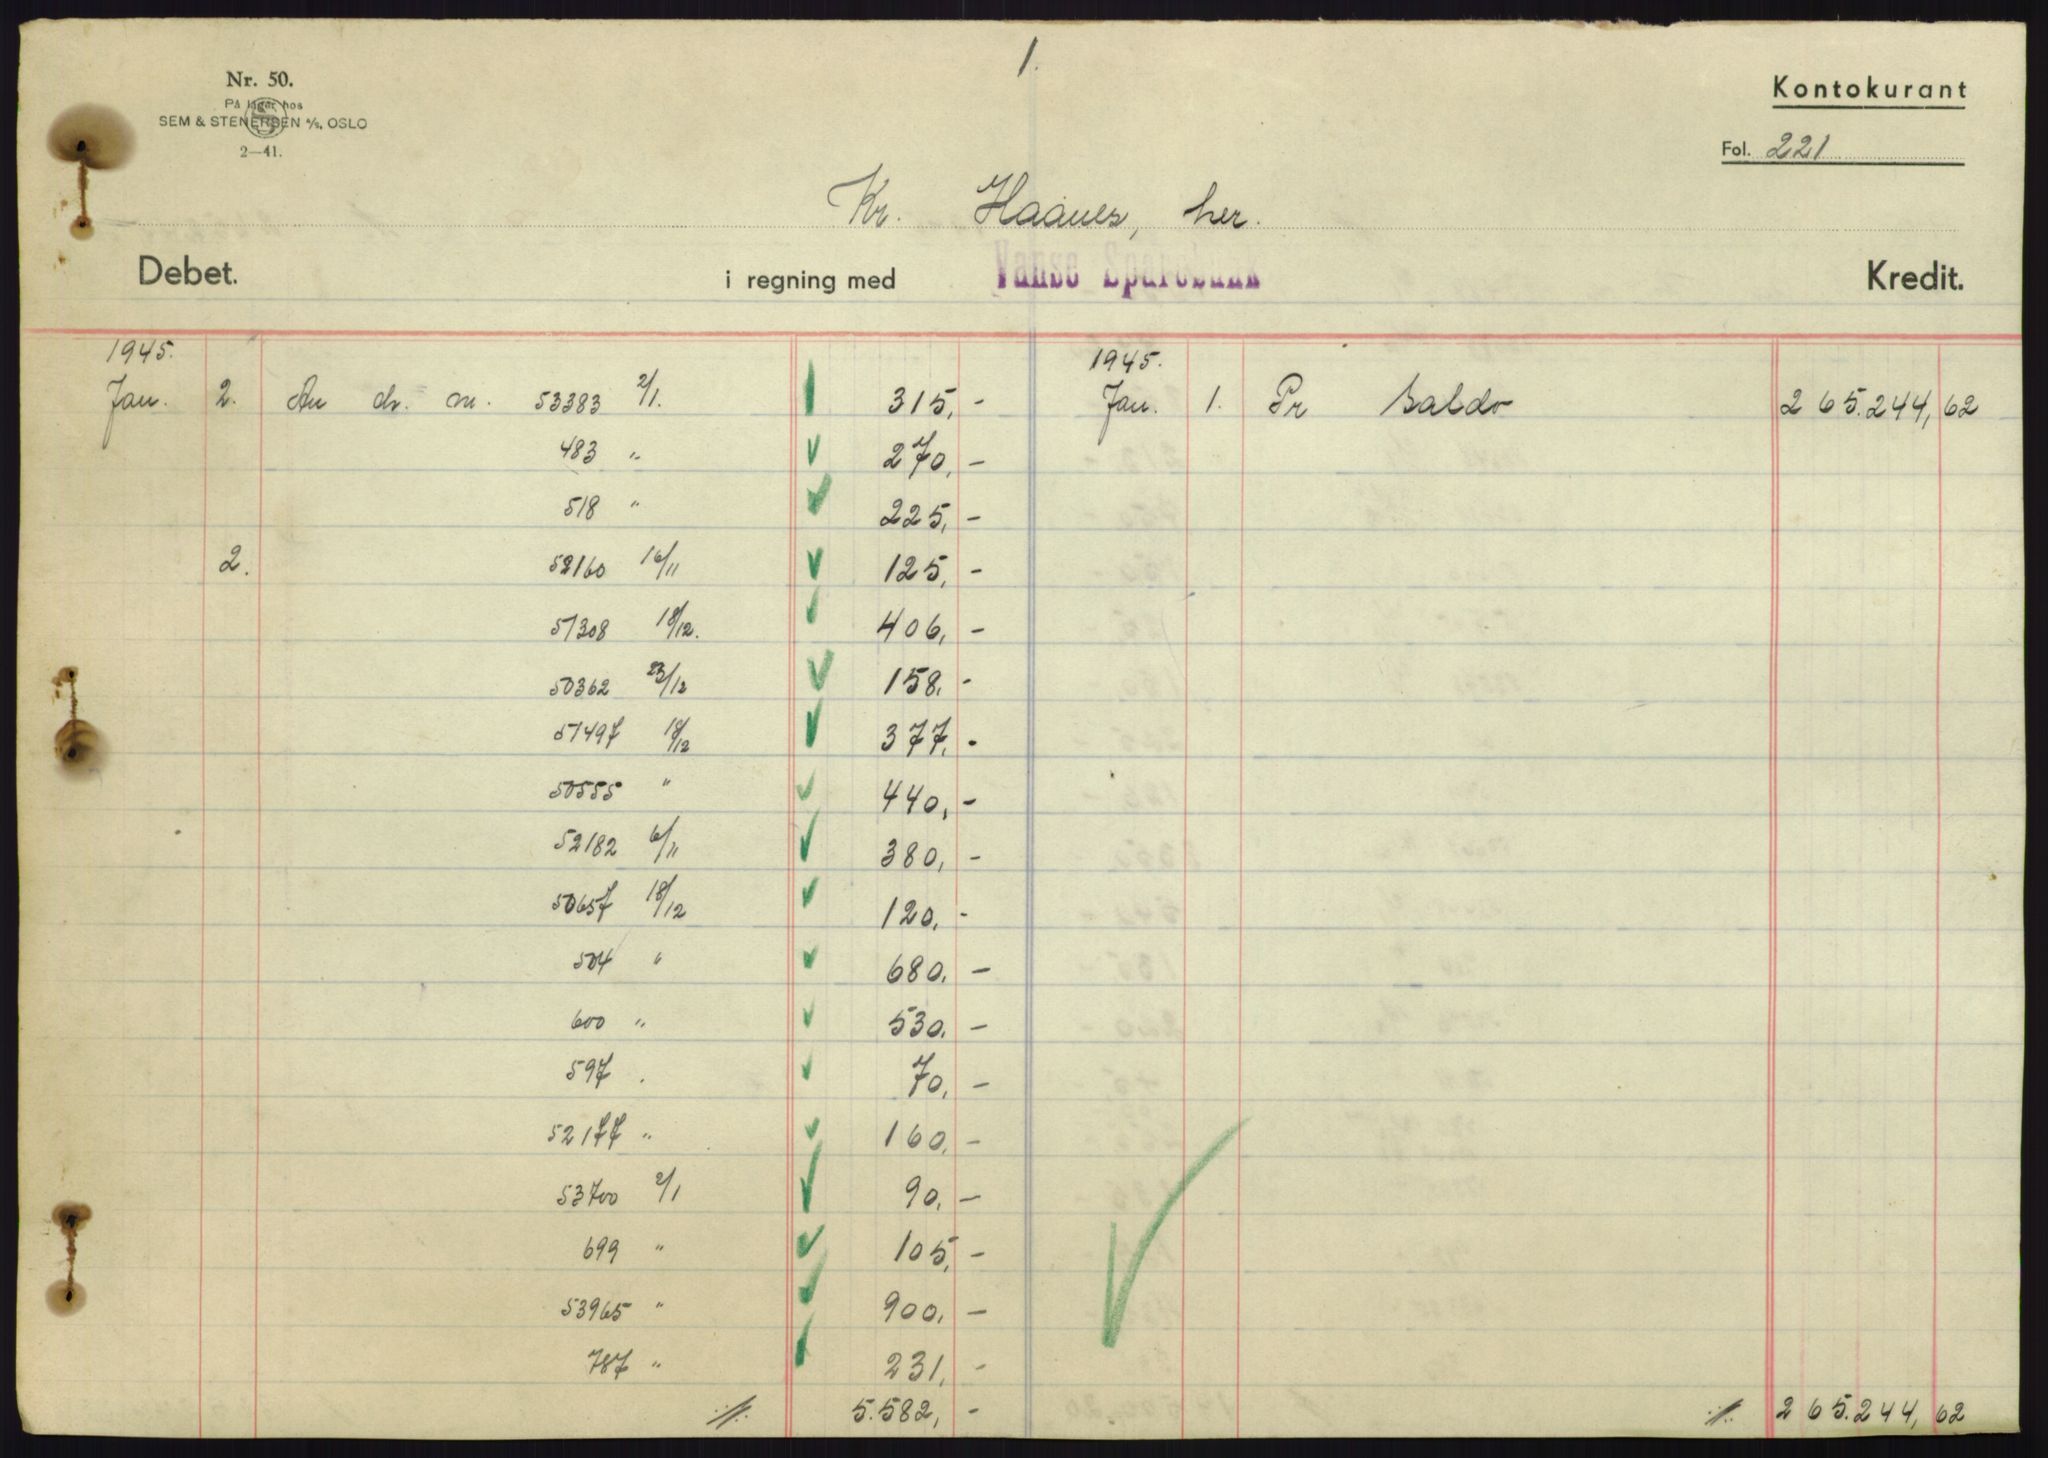 1.
Nr. 50.
På lager hos
SEM & STENERSEN A/S, OSLO
2—41.
Kontokurant
Fol. 221
Kr. Haanes, her.
Debet. i regning med Vanse Sparebank Kredit.
1945. 1945.
Jan. 2. An ch. nr. 53383 2/1. 315,- Jan. 1. Pr Saldo 265.244,62
483 " 270,-
518 " 225,-
2. 52160 16/11 125,-
51308 18/12. 406,-
50362 23/12 158,-
51497 18/12 377,-
50555 " 440,-
52182 6/11 380,-
50657 18/12 120,-
504 " 680,-
600 " 530,-
597 . 70,-
52177 " 160,-
53700 2/1 90,-
699 " 105,-
53965 " 900,-
787 " 231,-
./. 5.582,- ./. 265.244,62